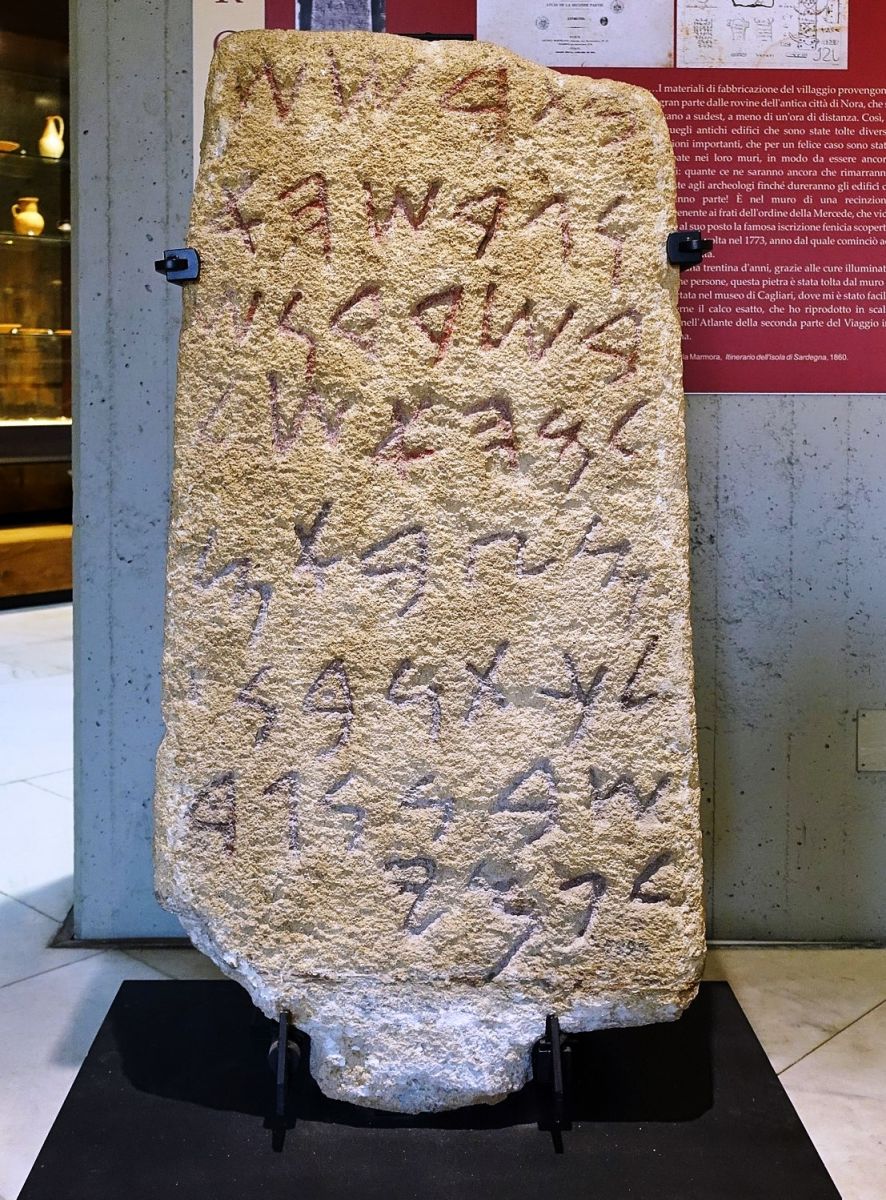 𐤁𐤕𐤓𐤔𐤔
𐤅𐤂𐤓𐤔𐤄𐤀
𐤁𐤔𐤓𐤃𐤍𐤔
𐤋𐤌𐤄𐤀𐤔𐤋
𐤌𐤑𐤁𐤀𐤌
𐤋𐤊𐤕𐤍𐤁𐤍
𐤔𐤁𐤍𐤍𐤂𐤃
𐤋𐤐𐤌𐤉
...I materiali di fabbricazione del villaggio provengon
gran parte dalle rovine dell'antica città di Nora, che
ano a sudest, a meno di un'ora di distanza. Così,
uegli antichi edifici che sono state tolte divers
ioni importanti, che per un felice caso sono stat
ate nei loro muri, in modo da essere ancor
quante ce ne saranno ancora che rimarrann
te agli archeologi finché dureranno gli edifici
nno parte! È nel muro di una recinzion
enente ai frati dell'ordine della Mercede, che vic
al suo posto la famosa iscrizione fenicia scopert
olta nel 1773, anno dal quale cominciò
na trentina d'anni, grazie alle cure illuminat
he persone, questa pietra è stata tolta dal muro
rtata nel museo di Cagliari, dove mi è stato facil
erne il calco esatto, che ho riprodotto in scal
nell'Atlante della seconda parte del Viaggio i
la Marmora, Itinerario dell'Isola di Sardegna, 1860.